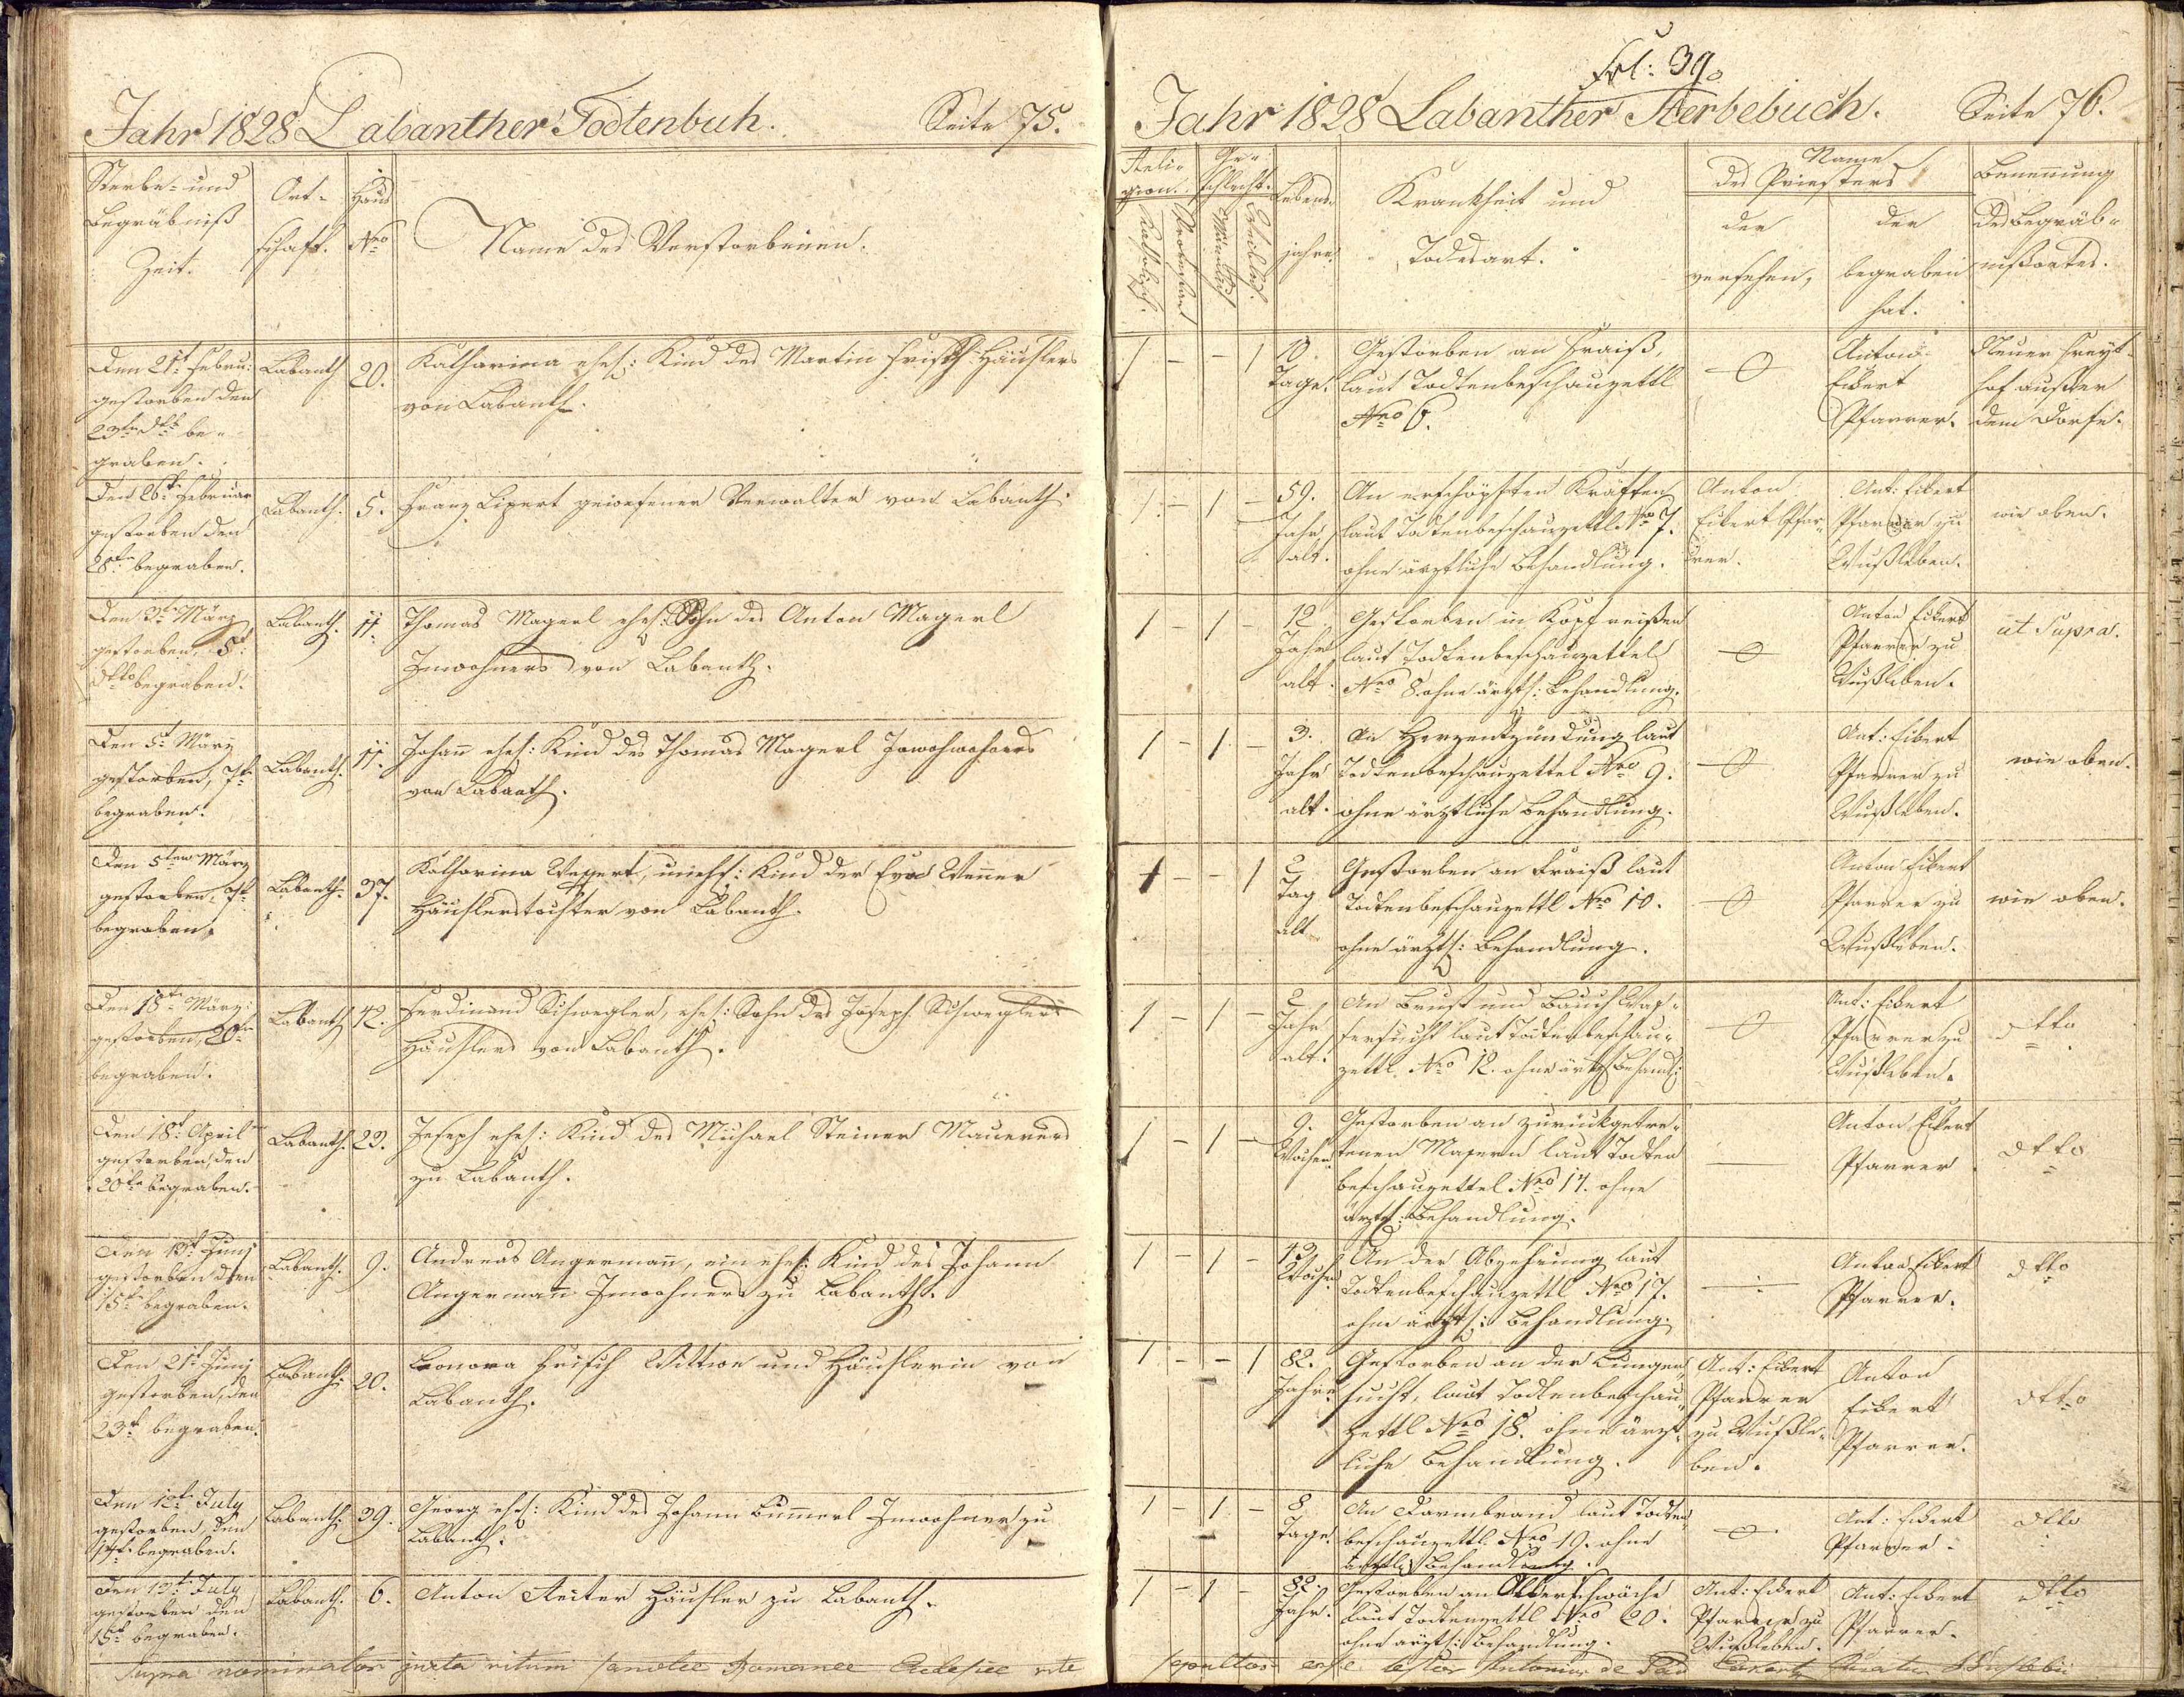 Jahr 1828 Labanther Todtenbuch. Seite 75.
Sterbe- und
Begräbniß
Zeit.
Ort-
schaft.
Haus
Nro
Name des Verstorbenen.
Den 21t Febru:
gestorben den
23tn dto be-
graben.
Labanth
20.
Katharina ehel: Kind des Martin Frisch Häuslers
von Labanth.
Den 26tn Februar
gestorben den
28tn begraben.
Labanth.
5.
Franz Lipert gewesener Verwalter von Labanth
Den 3tn März
gestorben, 5t
dtto begraben.
Labanth.
11.
Thomas Magerl ehel: Sohn des Anton Magerl
Inwohners von Labanth.
Den 5t März
gestorben, 7tn
begraben.
Labanth.
11.
Johann ehel: Kind des Thomas Magerl
von Labanth.
Den 5ten März
gestorben, 7t
begraben.
Labanth.
37.
Katharina unehl: Kind der Eva
Häuslerstochter von Labanth.
Den 18tn März
gestorben, 20tn
begraben.
Labanth
42.
Ferdinand ehel: Sohn des Joseph
Häuslers von Labanth.
Den 18t April
gestorben, den
20tn begraben.
Labanth.
23.
Joseph ehel: Kind des Michael Steiner Maurers
zu Labanth.
Den 13t Juny
gestorben den
15tn begraben.
Labanth.
9.
Andreas Angermann, ein ehel: Kind des Johann
Angermann Inwohners zu Labanth.
Den 21t Juny
gestorben, den
23t begraben.
Labanth.
20.
Leonora Frisch Wittwe und Häuslerin von
Labanth.
Den 12tn July
gestorben, den
14t begraben.
Labanth.
39.
Georg ehel: Kind des Johann Bümerl Inwohner zu
Labanth.
Den 13t July
gestorben den
15t begraben.
Labanth.
6.
Anton Reiter Häusler zu Labanth.
Supra nominatos juxta ritum sanctae Romanae Eclesiae rite
Fol: 39.
Jahr 1828 Labanther Sterbebuch. Seite 76.
Reli-
gion.
Katholisch.
Protestant
Ge-
schlecht.
Männlich
Weiblich.
Lebens-
jahre.
Krankheit und
Todesart.
Name
des Priesters
der
versehen,
der
begraben
hat.
Benennung
des Begräb-
nißortes.
1 - - 1
10
Tage.
Gestorben an Fraiß,
laut Todtenbeschauzettl
Nro 6.
Anton
Eckert
Pfarrer.
Neuer Freyt-
hof außer
dem Dorfe.
1 - 1 -
59.
Jahr
alt.
An erschöpften Kräften
laut Todtenbeschauzettl Nro 7.
ohne ärztliche Behandlung.
Anton
Eckert Pfar-
rer.
Ant: Eckert
Pfarrer zu
Wußleben.
wie oben.
1 - 1 -
12
Jahr
alt.
Gestorben in Kopfreißen
laut Todtenbeschauzettel
Nro 8. ohne ärztl: Behandlung.
Anton Eckert
Pfarrer zu
Wußleben.
ut Supra.
1 - 1 -
3.
Jahr
alt.
An Herzentzündung laut
Todtenbeschauzettel Nro 9.
ohne ärztliche Behandlung.
Ant: Eckert
Pfarrer zu
Wußleben.
wie oben.
1 - - 1
2
Tag
alt
Gestorben an Fraiß laut
Todtenbeschauzettl Nro 10.
ohne ärztl: Behandlung.
Anton Eckert
Pfarrer zu
Wußleben.
wie oben.
1 - 1 -
2
Jahr
alt.
An Brust und Bauch Was-
sersucht laut Todtenbeschau-
zettl. Nro 12. ohne ärztl Behandl:
Ant: Eckert
Pfarrer zu
Wußleben.
dtto
1 - 1 -
9.
Wochen
Gestorben an zurückgetre-
tenen Masern laut Todten
beschauzettel Nro 14. ohne
ärztl: Behandlung.
Anton Eckert
Pfarrer
dtto
1 - 1 -
13
Woche
An der Abzehrung laut
Todtenbeschauzettl Nro 17.
ohne ärztl: Behandlung.
Anton Eckert
Pfarrer.
dtto
1 - - 1
82.
Jahre.
Gestorben an der Lungen-
sucht, laut Todtenbeschau-
zettl Nro 18. ohne ärzt-
liche Behandlung.
Ant: Eckert
Pfarrer
zu Wußle-
ben.
Anton
Eckert
Pfarrer.
dtto
1 - 1 -
8
Tage.
An Darmbrand laut Todten-
beschauzettl. Nro 19. ohne
ärztl: Behandlung.
Ant: Eckert
Pfarrer.
dtto
1 - 1 -
82.
Jahr.
Gestorben an Altersschwäche
laut Todtenzettl Nro 20.
ohne ärztl: Behandlung.
Ant: Eckert
Pfarrer zu
Wußleben.
Ant: Eckert
Pfarrer.
dtto
sepultos esse testor Antonius de Pad